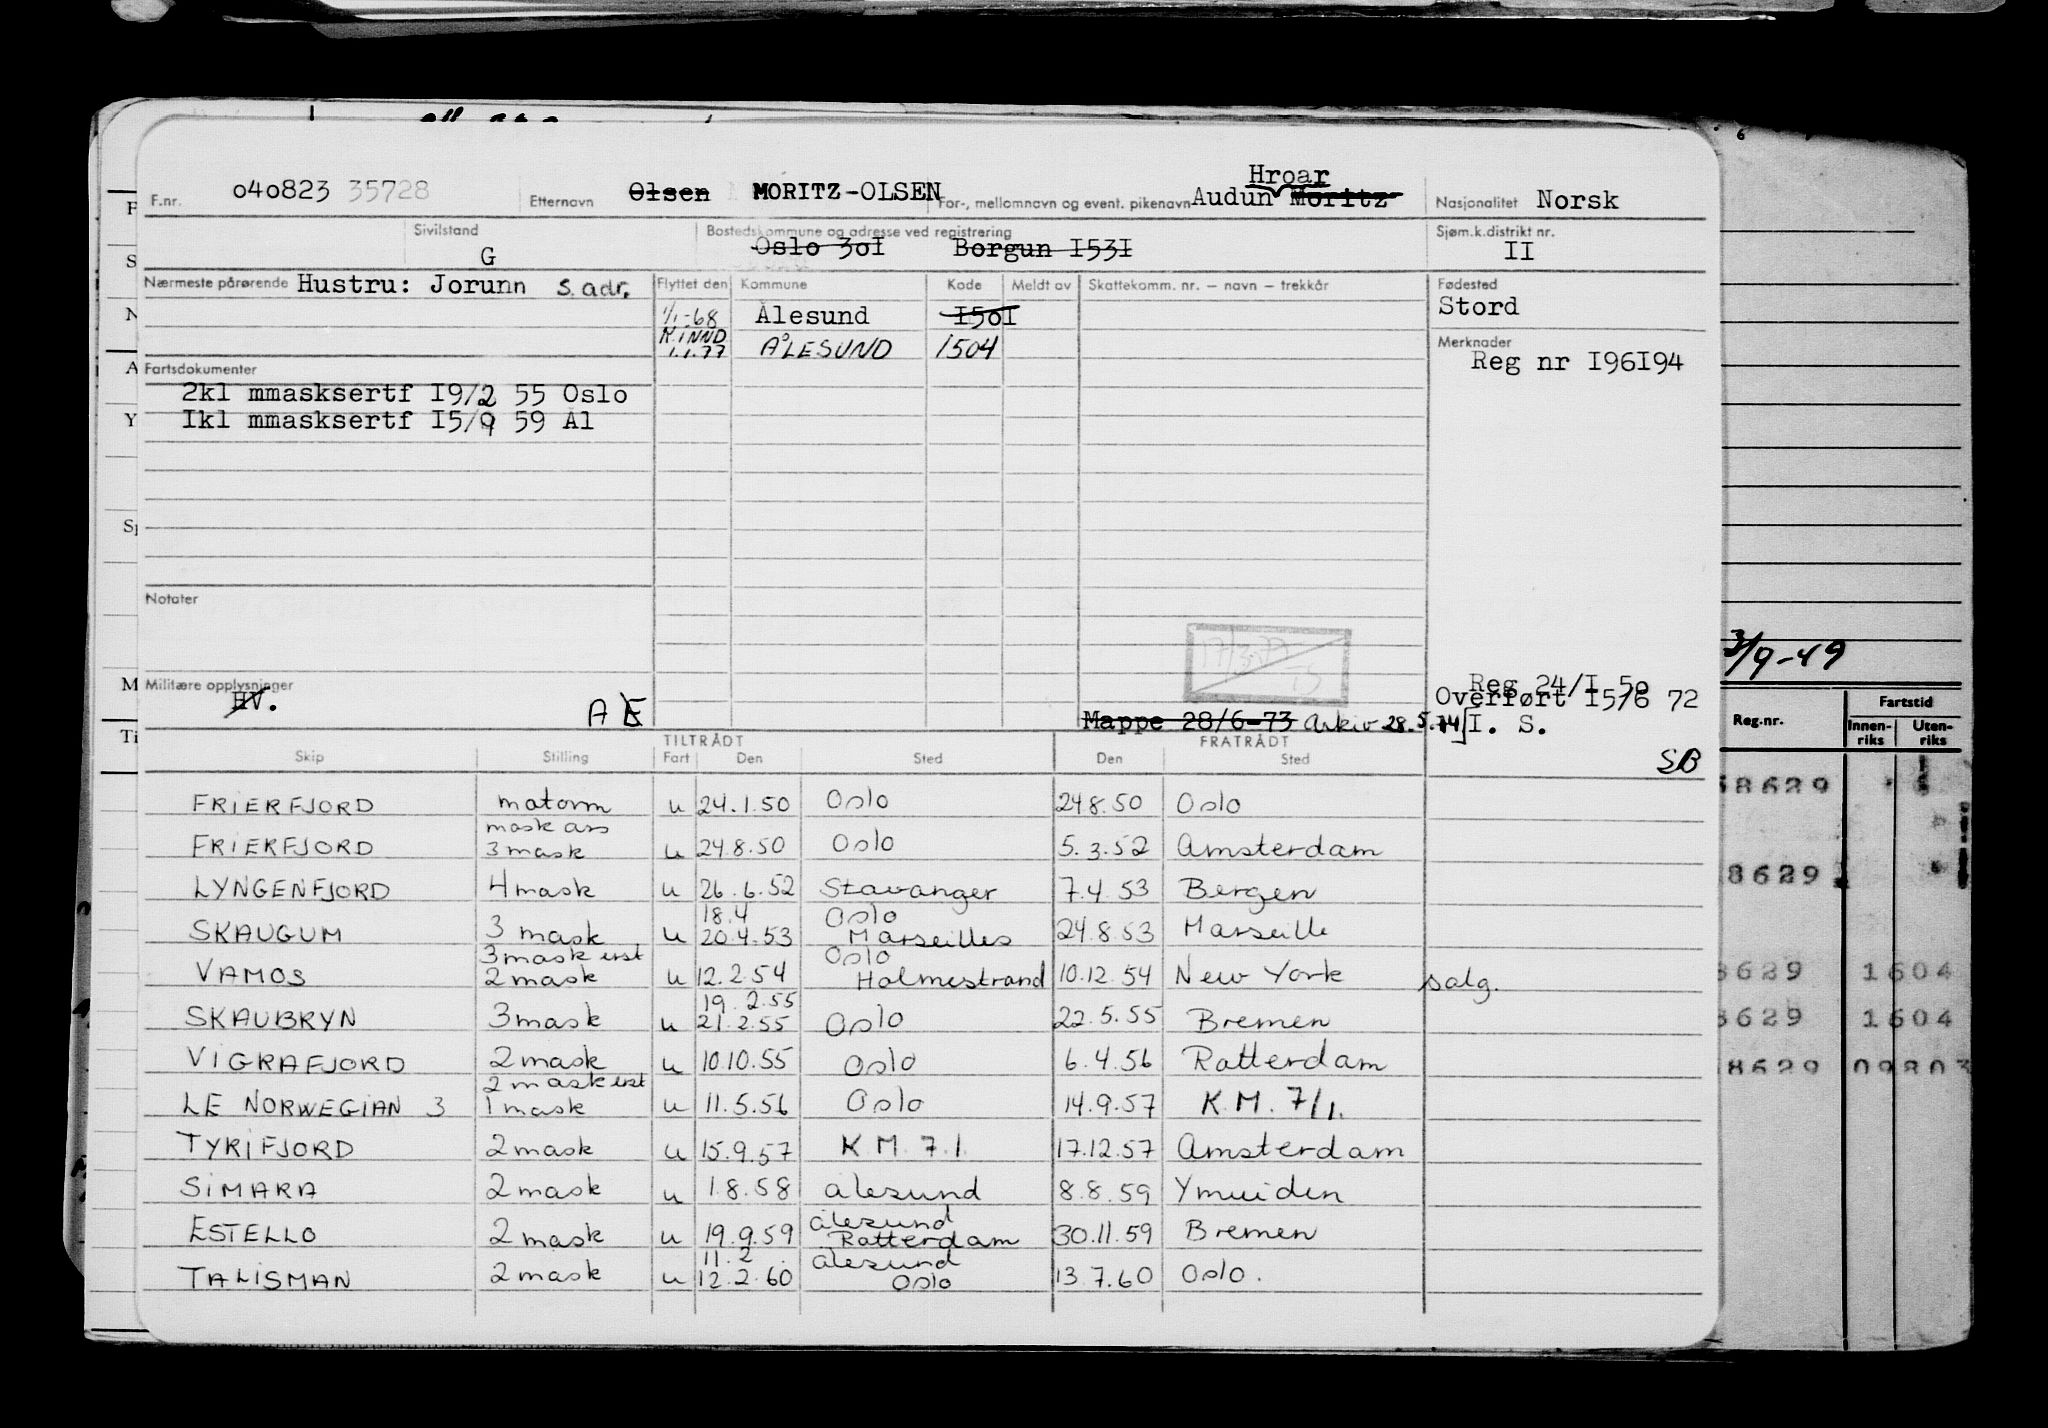 F.nr. 040823 35728 Etternavn Olsen MORITZ-OLSEN For-, mellomnavn og event. pikenavn Audun Hroar Moritz Nasjonalitet Norsk
Sivilstand G Bostedskommune og adresse ved registrering Oslo 3oI Borgun I53I Sjøm.k.distrikt nr. II
Nærmeste pårørende Hustru: Jorunn s. adr. Flyttet den Kommune Kode Meldt av Skattekomm. nr. – navn – trekkår Fødested
1/1-68 Ålesund I5oI Stord
M.INND 1.1.77 ÅLESUND 1504 Merknader
Reg nr I96I94
Fartsdokumenter
2kl mmasksertf I9/2 55 Oslo
Ikl mmasksertf I5/9 59 Ål
Notater
3/9-49
Militære opplysninger HV. A E
Reg 24/I 5o
Overført I5/6 72
Mappe 28/6-73 Arkiv 28.5.74 I. S.
SB
TILTRÅDT FRATRÅDT
Skip Stilling Fart Den Sted Den Sted
FRIERFJORD matorm u 24.1.50 Oslo 24.8.50 Oslo
mask ass
FRIERFJORD 3 mask u 24.8.50 Oslo 5.3.52 Amsterdam
LYNGENFJORD 4 mask u 26.6.52 Stavanger 7.4.53 Bergen
18.4 Oslo
SKAUGUM 3 mask u 20.4.53 Marseilles 24.8.53 Marseille
3 mask erst Oslo
VAMOS 2 mask u 12.2.54 Holmestrand 10.12.54 New York salg.
19.2.55
SKAUBRYN 3 mask u 21.2.55 Oslo 22.5.55 Bremen
VIGRAFJORD 2 mask u 10.10.55 Oslo 6.4.56 Rotterdam
2 mask erst
LE NORWEGIAN 3 1 mask u 11.5.56 Oslo 14.9.57 K.M. 7/1.
TYRIFJORD 2 mask u 15.9.57 K.M. 7.1 17.12.57 Amsterdam
SIMARA 2 mask u 1.8.58 Ålesund 8.8.59 Ymuiden
Ålesund
ESTELLO 2 mask u 19.9.59 Rotterdam 30.11.59 Bremen
11.2. Ålesund
TALISMAN 2 mask u 12.2.60 Oslo 13.7.60 Oslo.
Reg.nr. Fartstid
Innen-riks Uten-riks
8629
8629 1604
8629 1604
8629 09803